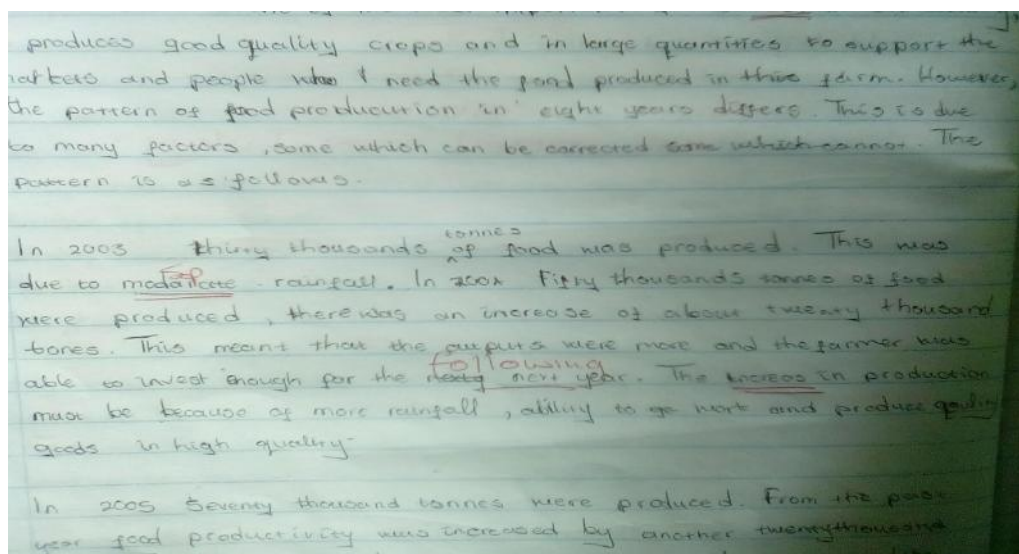 produces good quality crops and in large quantities to support the
markets and people who need the food produced in this farm. However,
the pattern of food producution in eight years differs. This is due
to many factors, some which can be corrected some which cannot. The
pattern is as follows.
In 2003 thirty thousands tonnes of food was produced. This was
due to rainfall. In 2004 Fifty thousands tonnes of food
were produced, there was an increase of about twenty thousand
tones. This meant that the outputs were more and the farmer was
able to invest enough for the following next year. The increas in production
must be because of more rainfall, ability to go work and produce
goods in high quality.
In 2005 Seventy thousand tonnes were produced. From the past
year food productivity was increased by another twentythousand